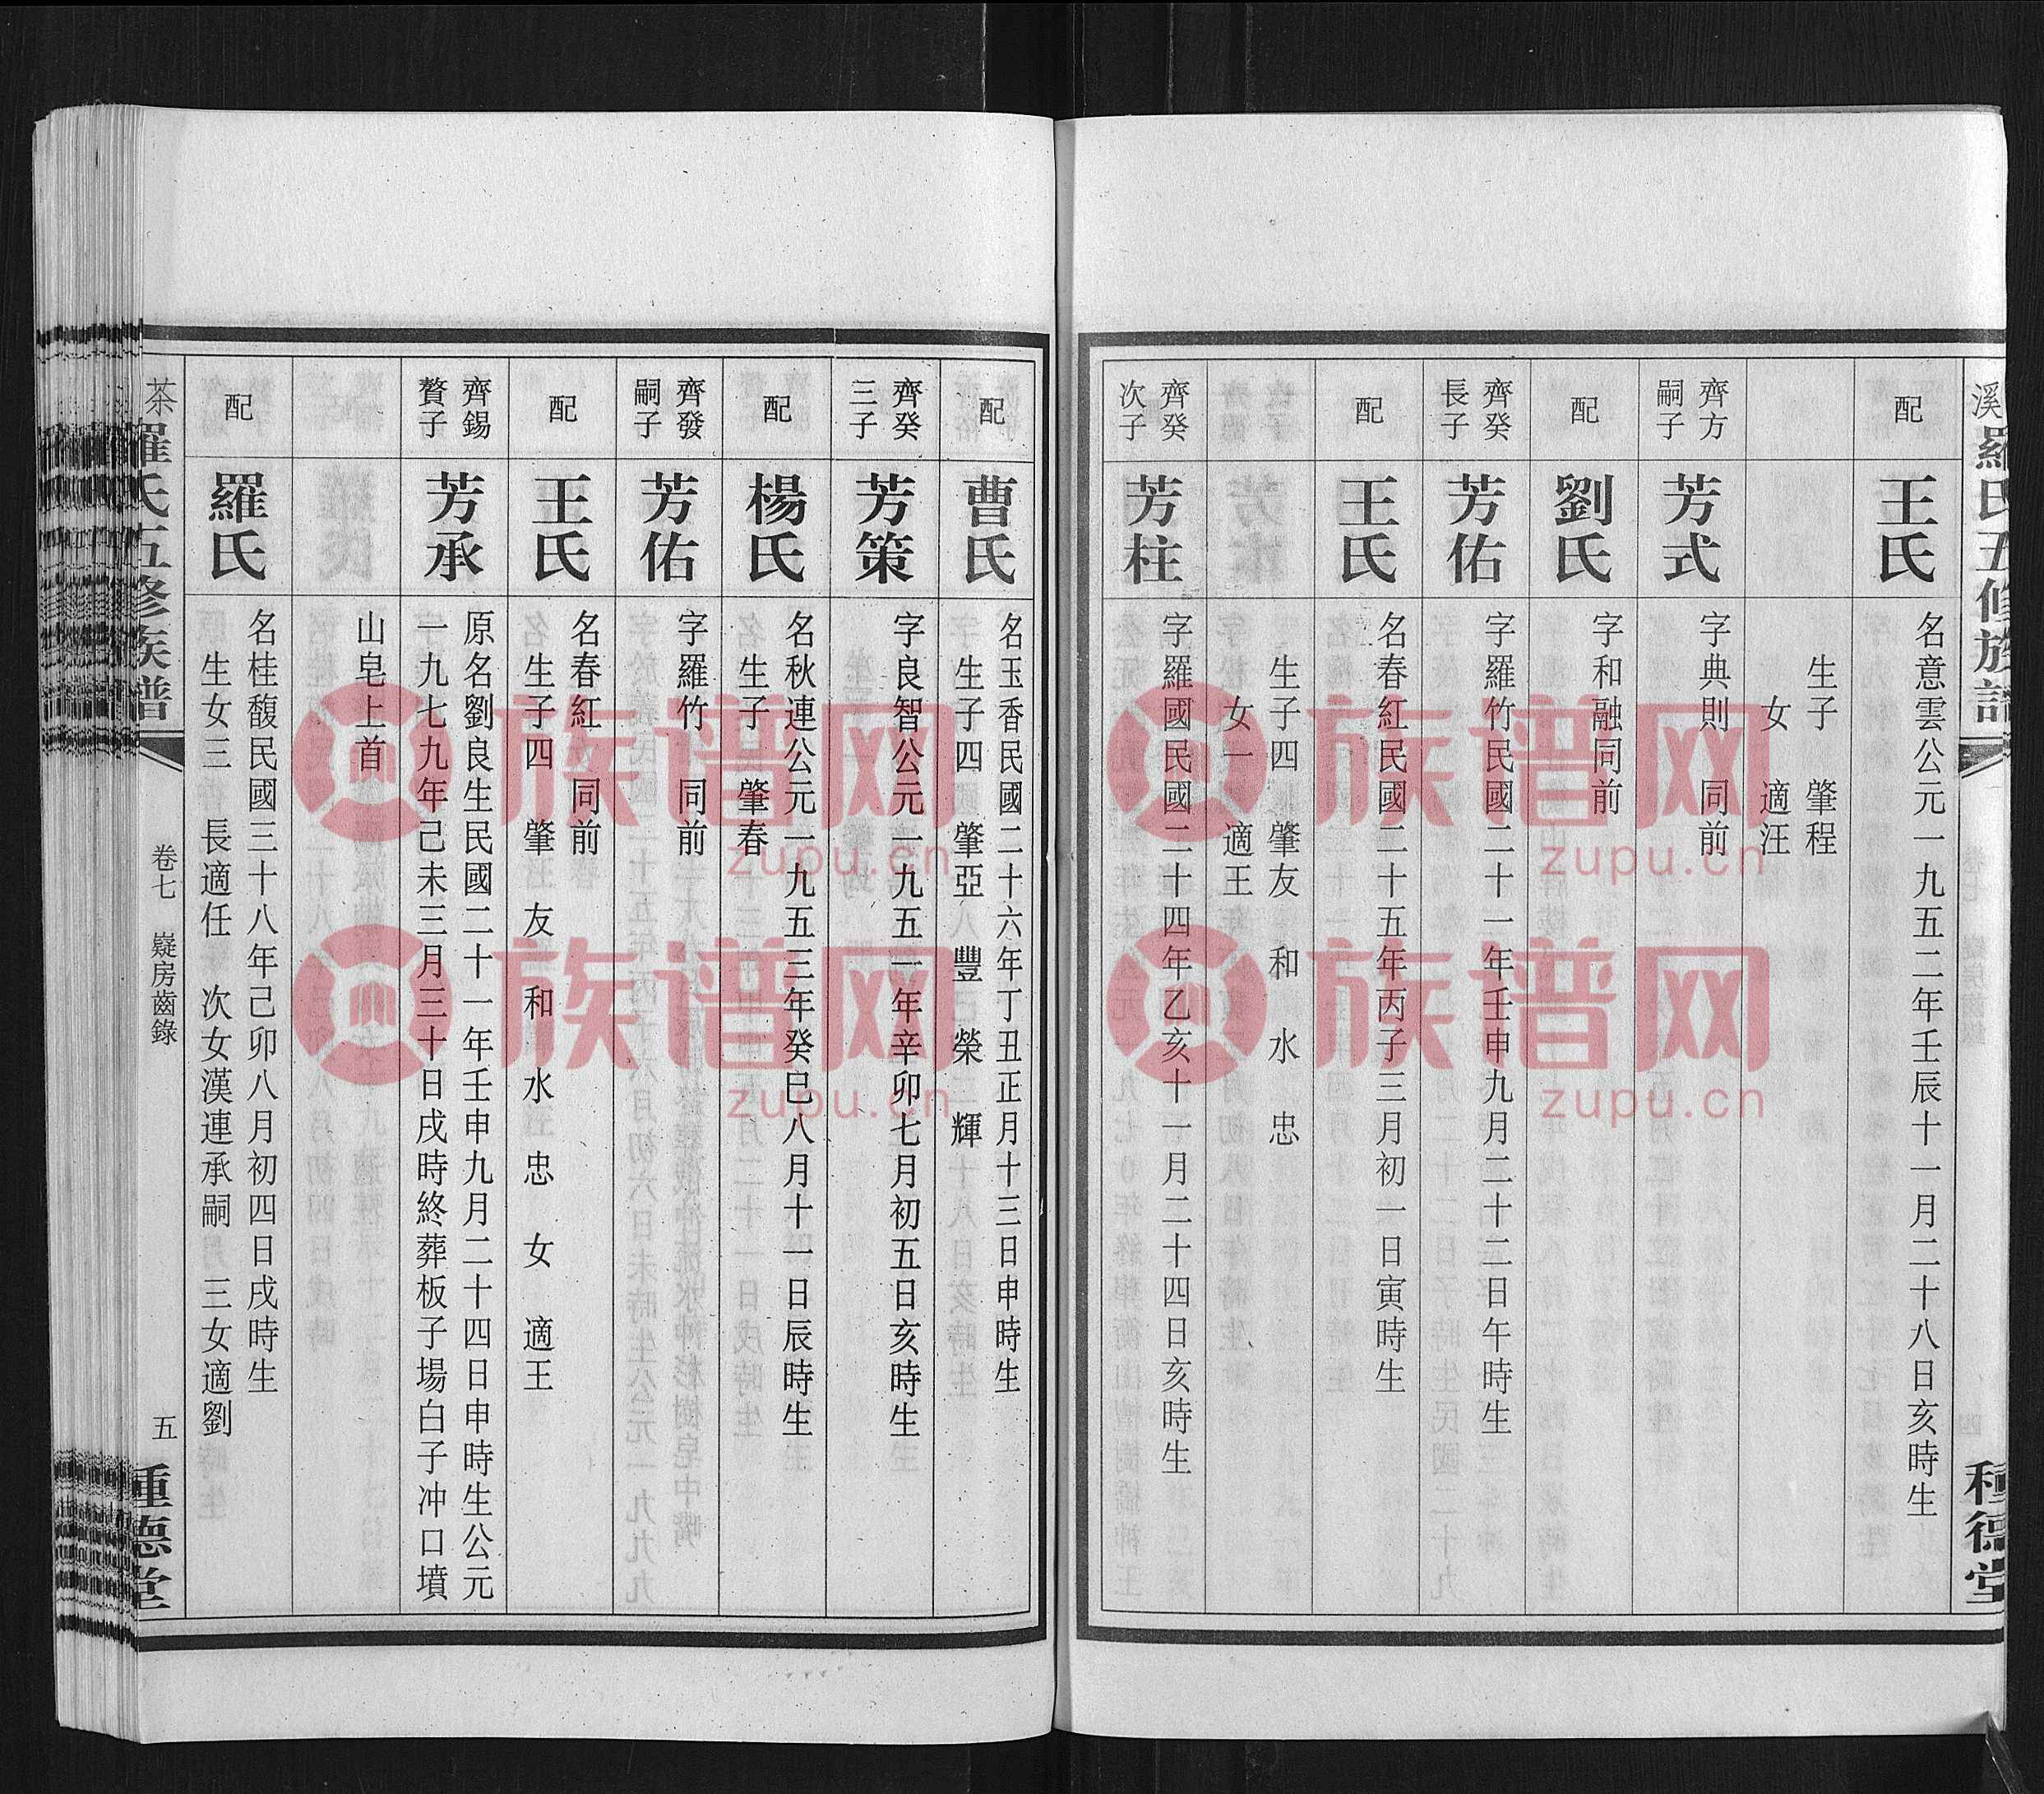 溪羅氏五修族譜
種德堂
配
王氏
名意雲公元一九五二年壬辰十一月二十八日亥時生
生子 肇程
女 適汪
齊方
嗣子
芳式
字典則 同前
配
劉氏
字和融同前
齊癸
長子
芳佑
字羅竹民國二十一年壬申九月二十二日午時生
配
王氏
名春紅民國二十五年丙子三月初一日寅時生
生子四 肇友 和 水 忠
女一 適王
齊癸
次子
芳柱
字羅國民國二十四年乙亥十一月二十四日亥時生
配
曹氏
名玉香民國二十六年丁丑正月十三日申時生
生子四 肇亞 豐 榮 輝
齊癸
三子
芳策
字良智公元一九五一年辛卯七月初五日亥時生
配
楊氏
名秋連公元一九五三年癸巳八月十一日辰時生
生子 肇春
齊發
嗣子
芳佑
字羅竹 同前
配
王氏
名春紅 同前
生子四 肇友和水忠 女 適王
齊錫
贅子
芳承
原名劉良生民國二十一年壬申九月二十四日申時生公元
一九七九年己未三月三十日戌時終葬板子場白子冲口墳
山皂上首
配
羅氏
名桂馥民國三十八年己卯八月初四日戌時生
生女三 長適任 次女漢連承嗣 三女適劉
茶羅氏五修族譜
卷七 嶷房齒錄
五
種德堂
族谱网
zupu.cn
族谱网
zupu.cn
族谱网
zupu.cn
族谱网
zupu.cn